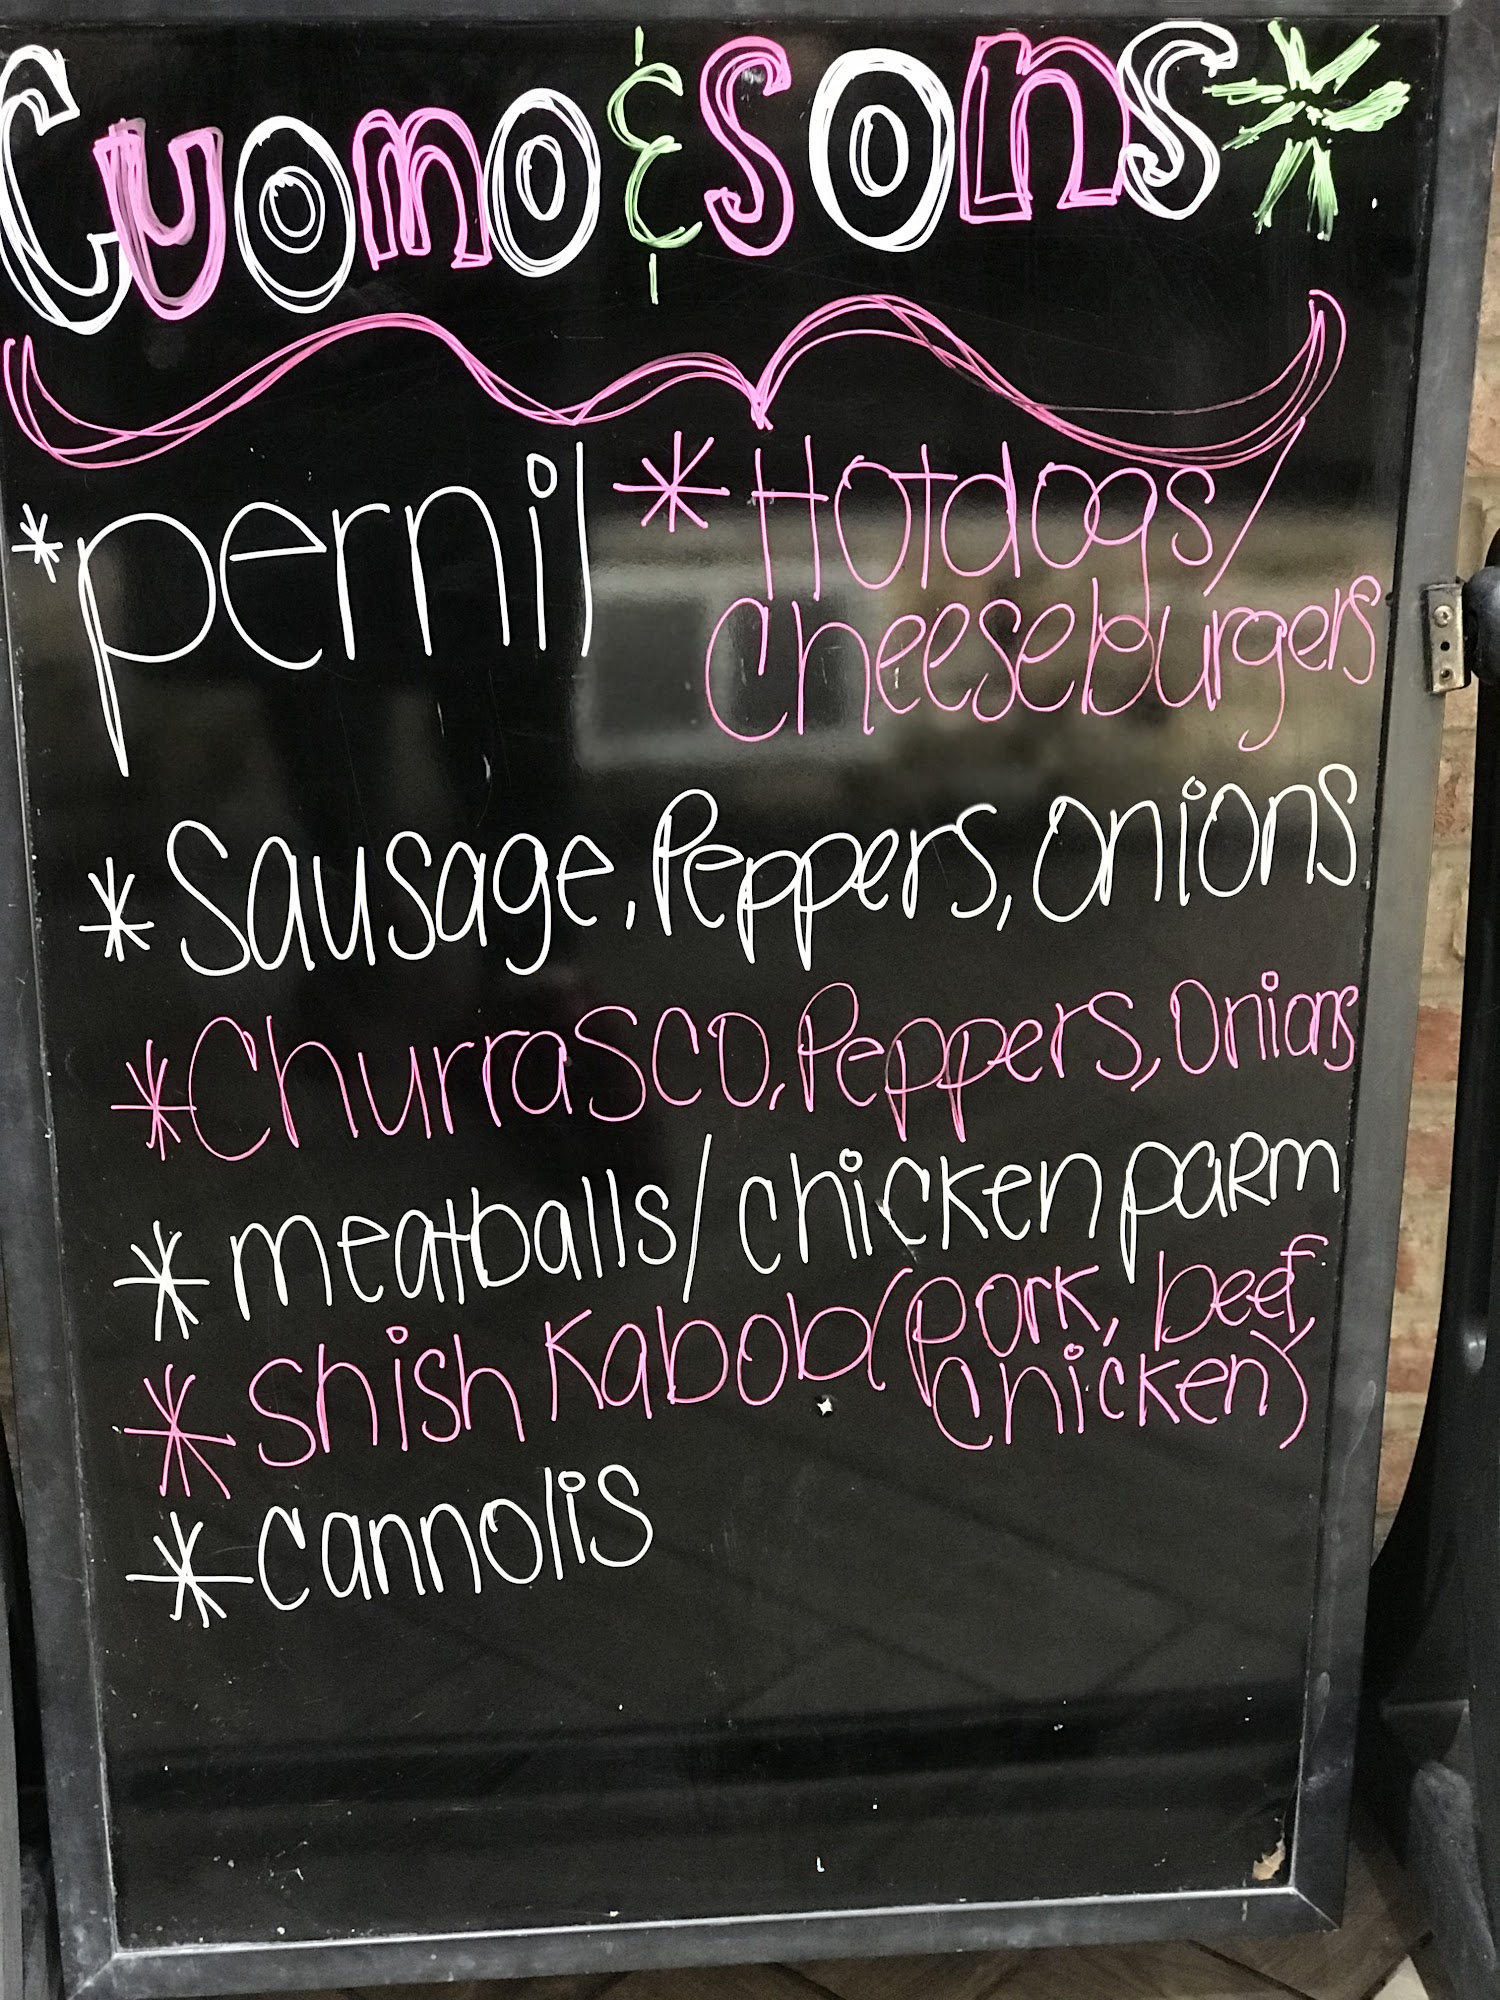 Cuomo & Sons*
*pernil *Hotdogs/
Cheeseburgers
*Sausage, Peppers, Onions
*Churrasco, Peppers, Onions
*meatballs/chicken parm
*Shish Kabob (pork, beef,
chicken)
*cannolis